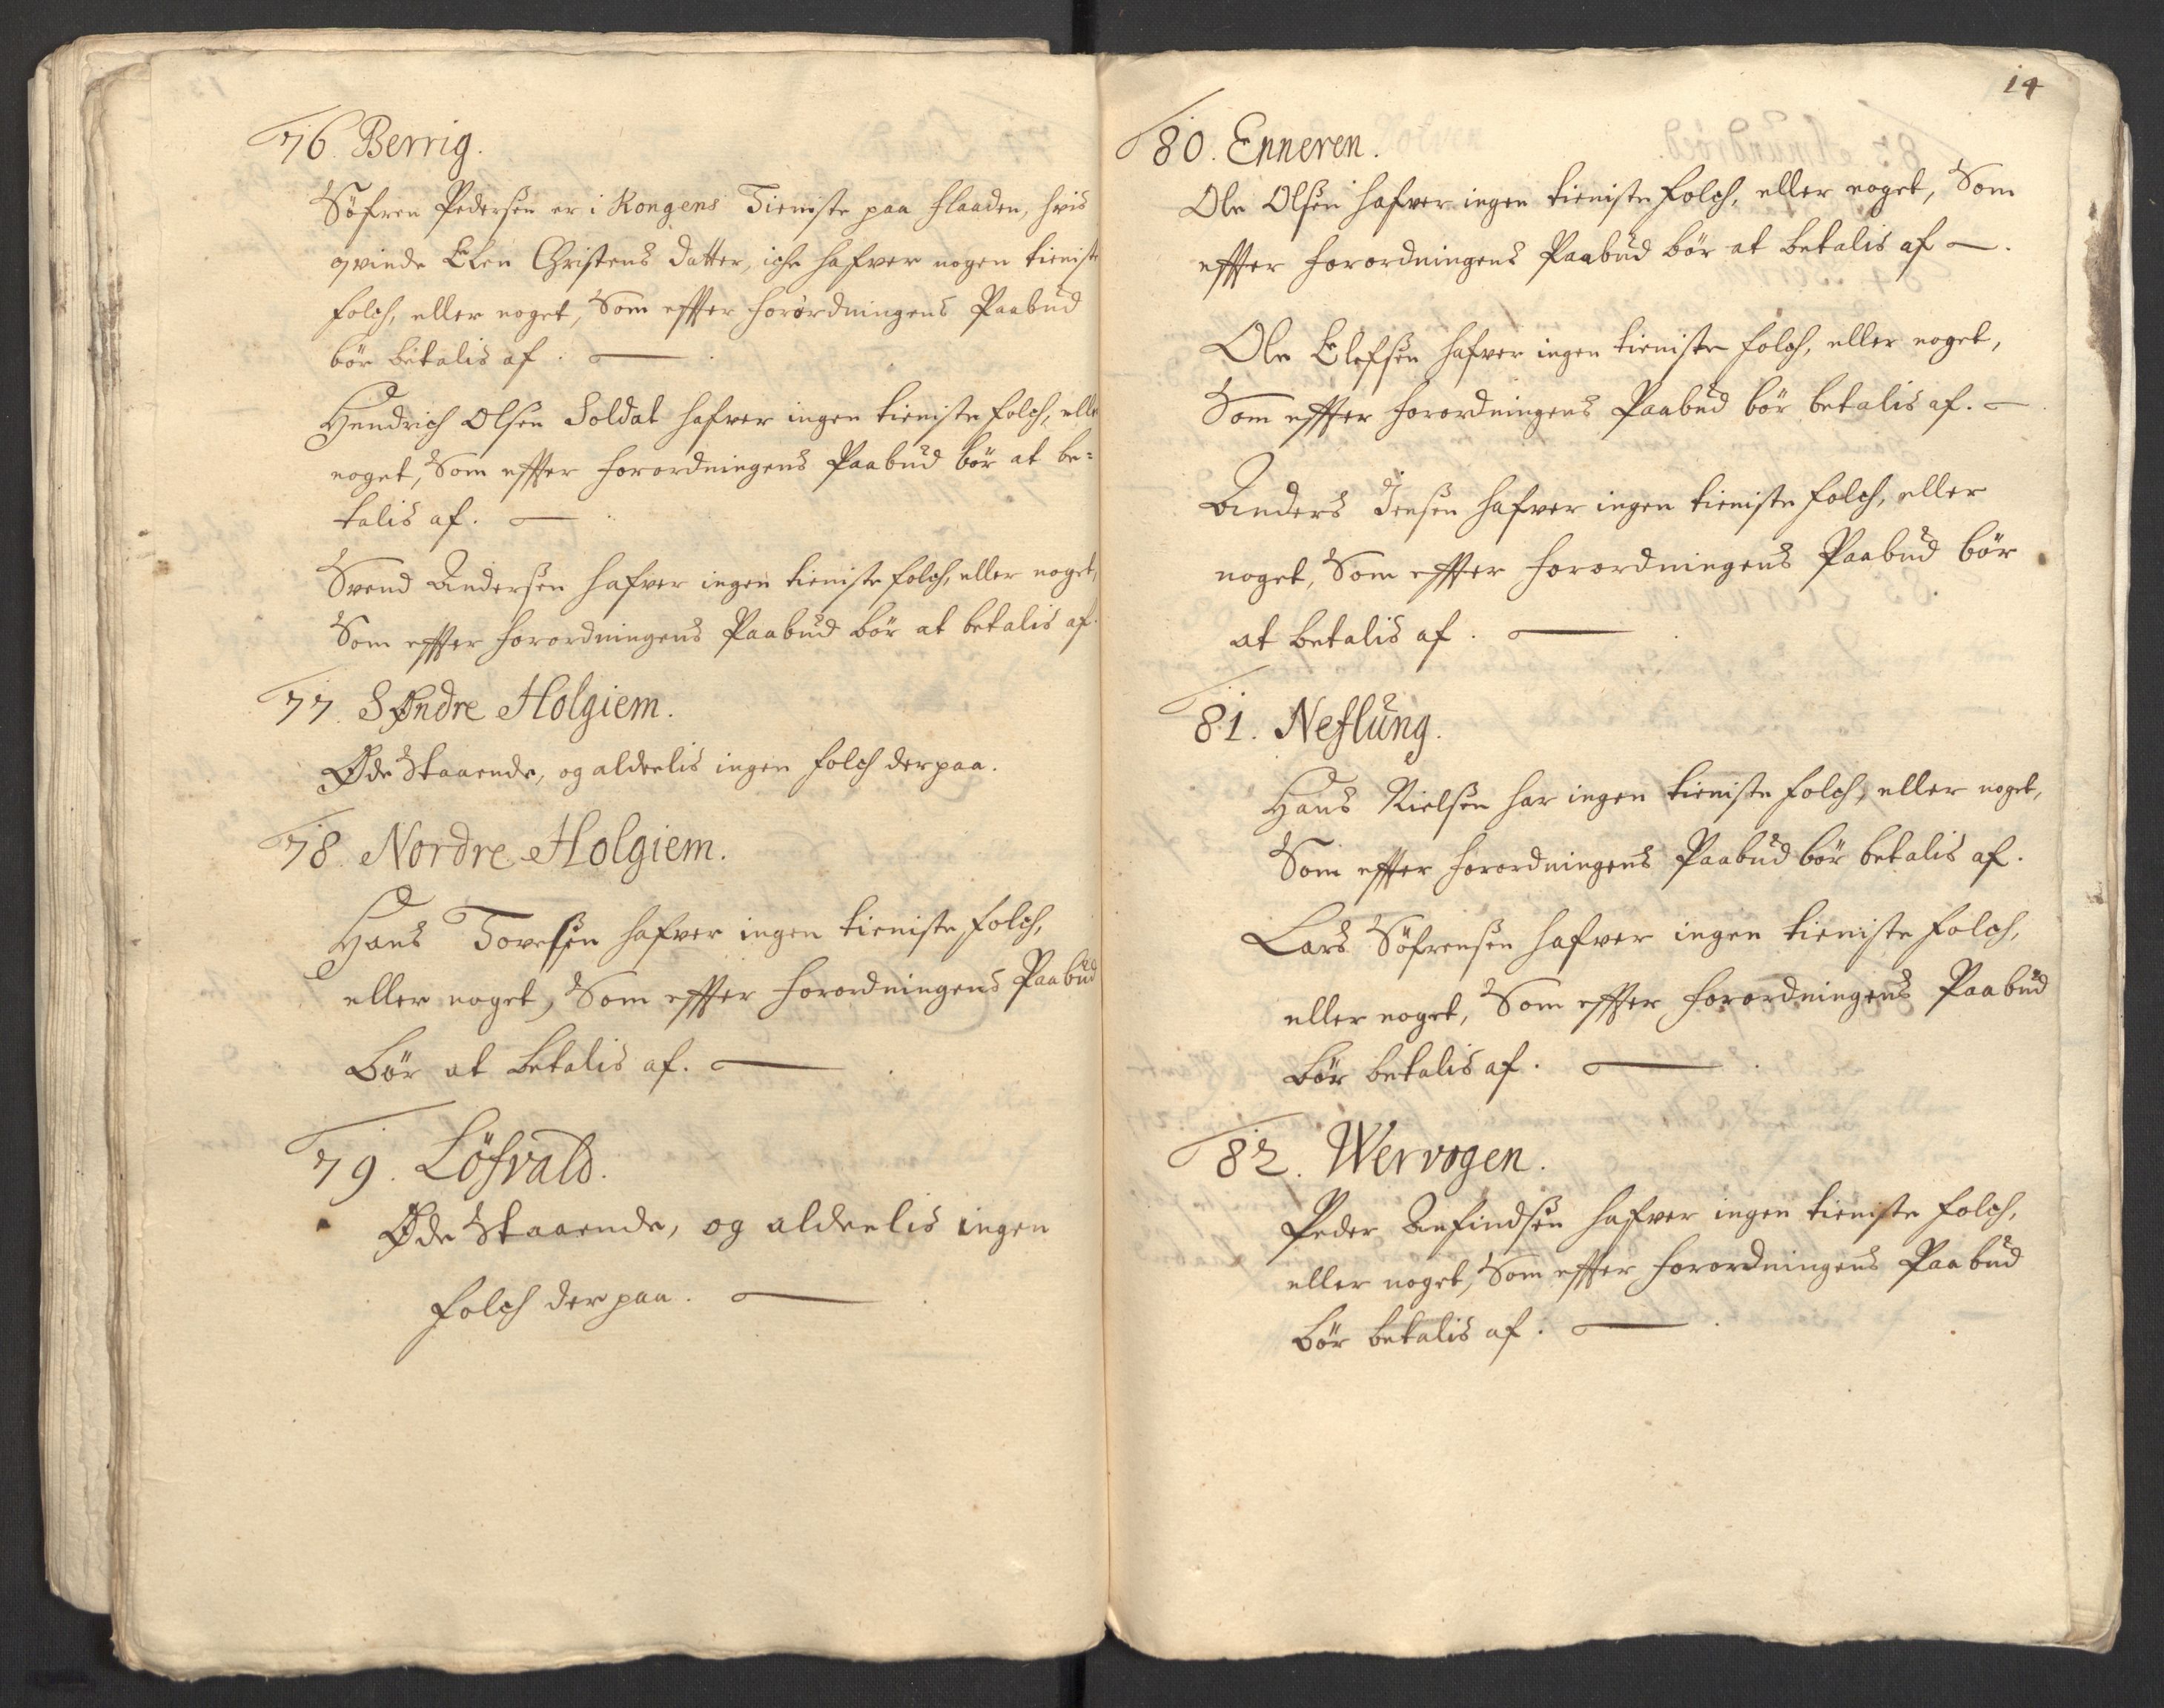 76. Berrig.
Söfren Pedersen er i Kongens Tieniste paa flaaden, hvis
qvinde Elen Christens datter, iche hafver nogen tieniste
folch, eller noget, Som effter forordningens Paabud
bör betalis af.
Hendrich Olsen Soldat hafver ingen tieniste folch, elle
noget, Som effter forordningens Paabud bör at be=
talis af.
Svend Andersen hafver ingen tieniste folch, eller noget,
Som effter forordningens Paabud bör at betalis af.
77. Søndre Holgiem.
Øde Staaende, og aldeelis ingen folch derpaa.
78. Nordre Holgiem.
Hans Tovesen hafver ingen tieniste folch,
eller noget, Som effter forordningens Paabud
bör at betalis af.
79. Löfvald.
Øde Staaende, og aldeelis ingen
folch derpaa.
14
80. Enneren.
Ole Olsen hafver ingen tieniste folch, eller noget, Som
effter forordningens Paabud bör at betalis af.
Ole Elefsen hafver ingen tieniste folch, eller noget,
Som effter forordningens Paabud bör betalis af.
Anders Jensen hafver ingen tieniste folch, eller
noget, Som effter forordningens Paabud bör
at betalis af.
81. Neflung.
Hans Nielsen har ingen tieniste folch, eller noget,
Som effter forordningens Paabud bör betalis af.
Lars Söfrensen hafver ingen tieniste folch,
eller noget, Som effter forordningens Paabud
bör betalis af.
82. Wervogen.
Peder Anfindsen hafver ingen tieniste folch,
eller noget, Som effter forordningens Paabud
bör betalis af.